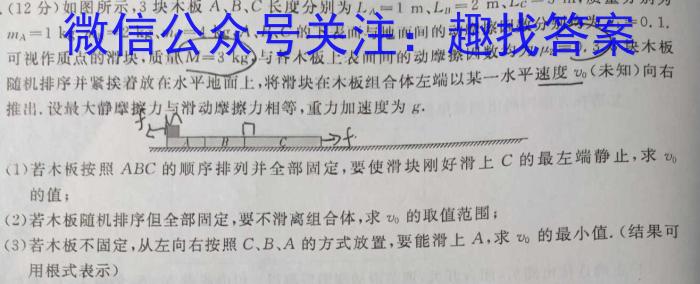 .(12分)如图所示,3块木板 A、B、C 长度分别为 L_A=1 m、L_B=2 m、L_C=3 m,质量分别为
m_A=1 k
=0.1.
微信公众号关注:趣找答案
可视作质点的滑块,质量M=3 kg,与各木板上表面间的动摩擦因数均为
块木板
随机排序并紧挨着放在水平地面上,将滑块在木板组合体左端以某一水平速度 v₀(未知)向右
推出.设最大静摩擦力与滑动摩擦力相等,重力加速度为 g.
f
A B C
f
(1)若木板按照 ABC 的顺序排列并全部固定,要使滑块刚好滑上 C 的最左端静止,求 v₀
的值;
(2)若木板随机排序但全部固定,要不滑离组合体,求 v₀ 的取值范围;
(3)若木板不固定,从左向右按照 C、B、A 的方式放置,要能滑上 A,求 v₀ 的最小值.(结果可
用根式表示)